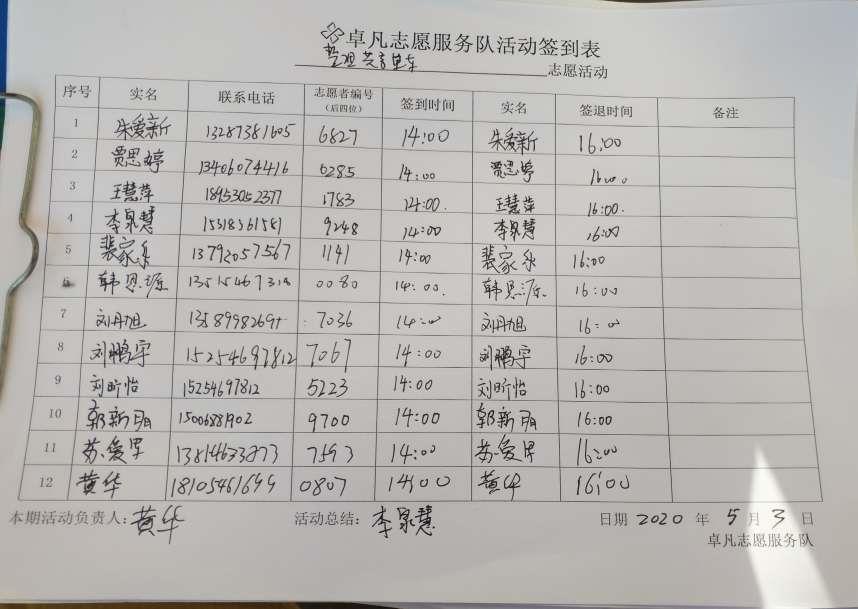 卓凡志愿服务队活动签到表
整理共享单车 志愿活动
序号 实名 联系电话 志愿者编号（后四位） 签到时间 实名 签退时间 备注
1 朱爱新 13287381605 6827 14:00 朱爱新 16:00
2 贾思婷 13406074416 0285 14:00 贾思婷 16:00
3 王慧萍 18953052377 1783 14:00. 王慧萍 16:00.
4 李泉慧 15318361581 9248 14:00 李泉慧 16:00
5 裴家乐 13792057567 1141 14:00 裴家乐 16:00
6 韩思源 0080 14:00. 韩思源 16:00
7 刘丹旭 7036 14:00 刘丹旭 16:00
8 刘鹏宇 15254697812 7067 14:00 刘鹏宇 16:00
9 刘昕怡 15254697812 5223 14:00 刘昕怡 16:00
10 郭新雨 15006881902 9700 14:00 郭新雨 16:00
11 苏爱军 7593 14:00 苏爱军 16:00
12 黄华 18105461699 0807 14:00 黄华 16:00
本期活动负责人：黄华 活动总结：李泉慧 日期 2020 年 5 月 3 日
卓凡志愿服务队